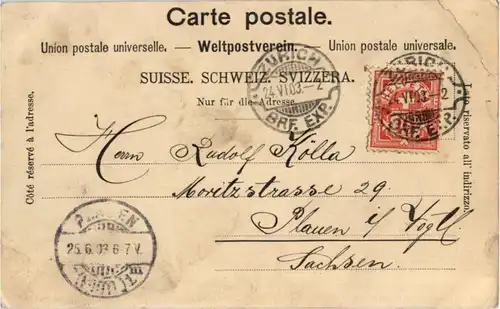 Carte postale.
Union postale universelle. — Weltpostverein. Union postale universale.
SUISSE. SCHWEIZ. SVIZZERA.
Nur für die Adresse.
Côté réservé à l'adresse.
Lato riservato all' indirizzo.
ZÜRICH
24.VI.03.–2
BRF. EXP.
ZÜRICH
24.VI.03.–2
BRF. EXP.
Herrn Rudolf Kölla
Moritzstrasse 29.
Plauen i/ Vogtl.
Sachsen.
PLAUEN
25.6.03 6-7 V.